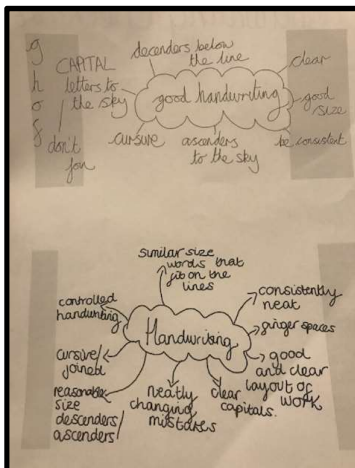 g
h
o
f
CAPITAL
letters to
the sky
don't
join
decenders below
the line
clear
good handwriting
good
size
cursive
ascenders
to the sky
be consistent
similar size
words that
fit on the
lines
controlled
handwriting
consistently
neat
Handwriting
finger spaces
cursive/
joined
good
and clear
layout of
work
reasonable
size
descenders/
ascenders
neatly
changing
mistakes
clear
capitals.